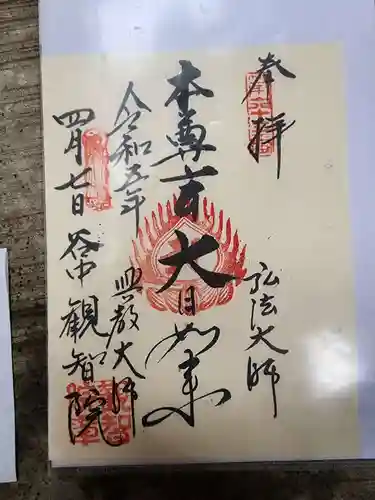 奉拝
弘法大師
本尊 大日如来
興教大師
令和五年
四月七日 谷中 観智院